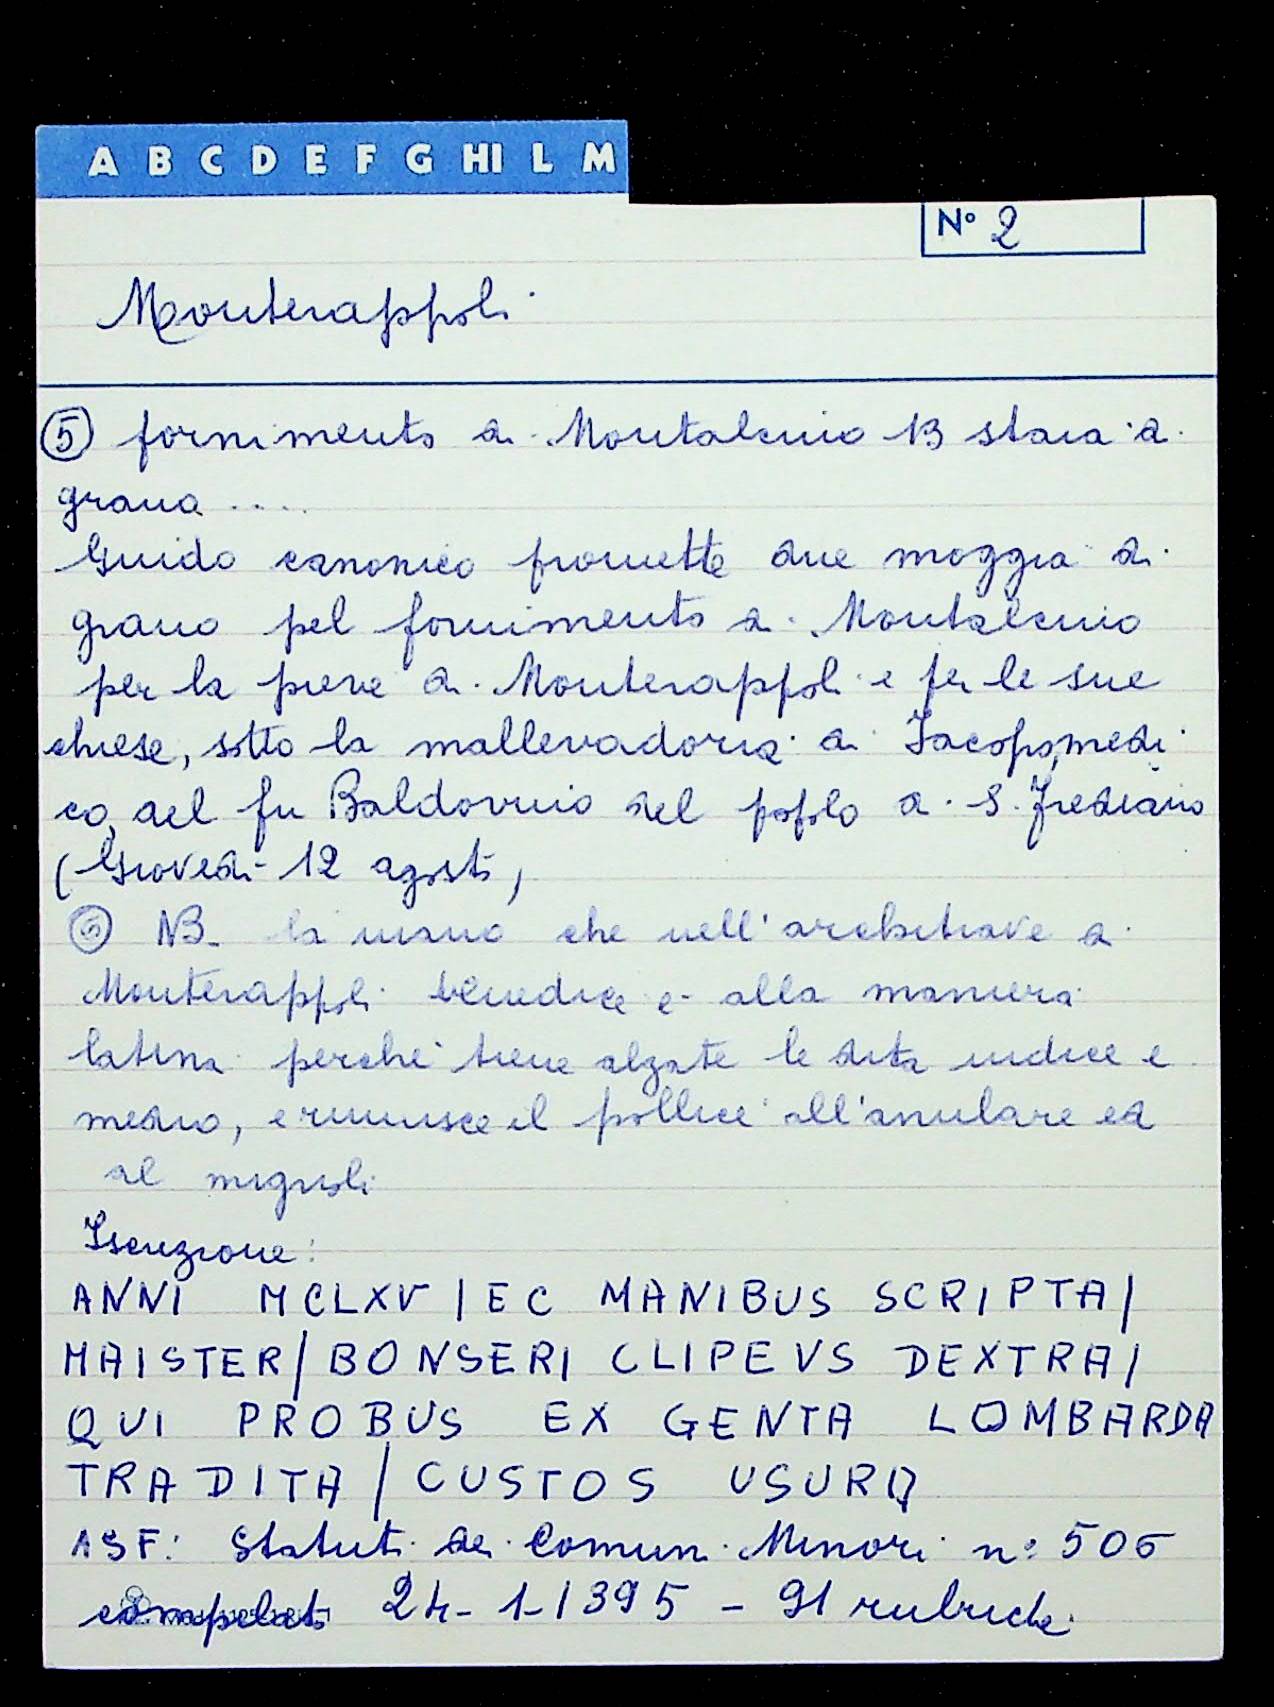 A B C D E F G HI L M
N° 2
Monterappoli
⑤ fornimento di Montalcino 13 staia di
grano ....
Guido canonico promette due moggia di
grano pel fornimento di Montalcino
per la pieve di Monterappoli e per le sue
chiese, sotto la mallevadoria di Iacopo, medi
co, del fu Baldovino del popolo di S. Frediano
(Giovedì 12 agosto)
⑥ NB. la mano che nell'architrave di
Monterappoli benedice è alla maniera
latina perché tiene alzate le dita indice e
medio, e riunisce il pollice all'anulare ed
al mignolo
Iscrizione:
ANNI MCLXV / EC MANIBUS SCRIPTA /
MAISTER / BONSERI CLIPEVS DEXTRA /
QUI PROBUS EX GENTA LOMBARDA
TRADITA / CUSTOS USURA
ASF: Statuti dei Comuni Minori n° 506
24-1-1395 - 91 rubriche